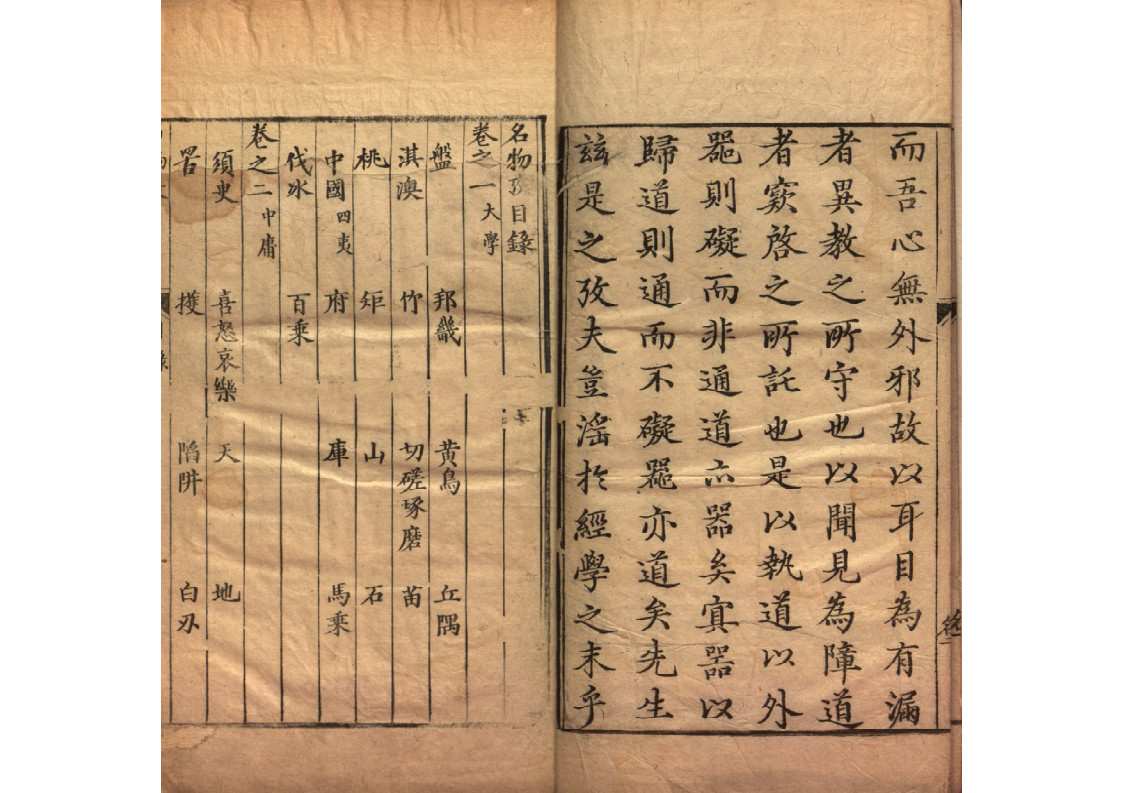 而吾心無外邪故以耳目為有漏
者異教之所守也以聞見為障道
者窾啓之所託也是以執道以外
噐則礙而非通道亦器矣寘噐以
歸道則通而不礙噐亦道矣先生
茲是之攷夫豈滛於經學之末乎
名物攷目錄
卷之一 大學
盤 邦畿 黄鳥 丘隅
淇澳 竹 切磋琢磨 苗
桃 矩 山 石
中國 四夷 府 庫 馬乘
伐冰 百乘
卷之二 中庸
須臾 喜怒哀樂 天 地
罟 擭 陷阱 白刃